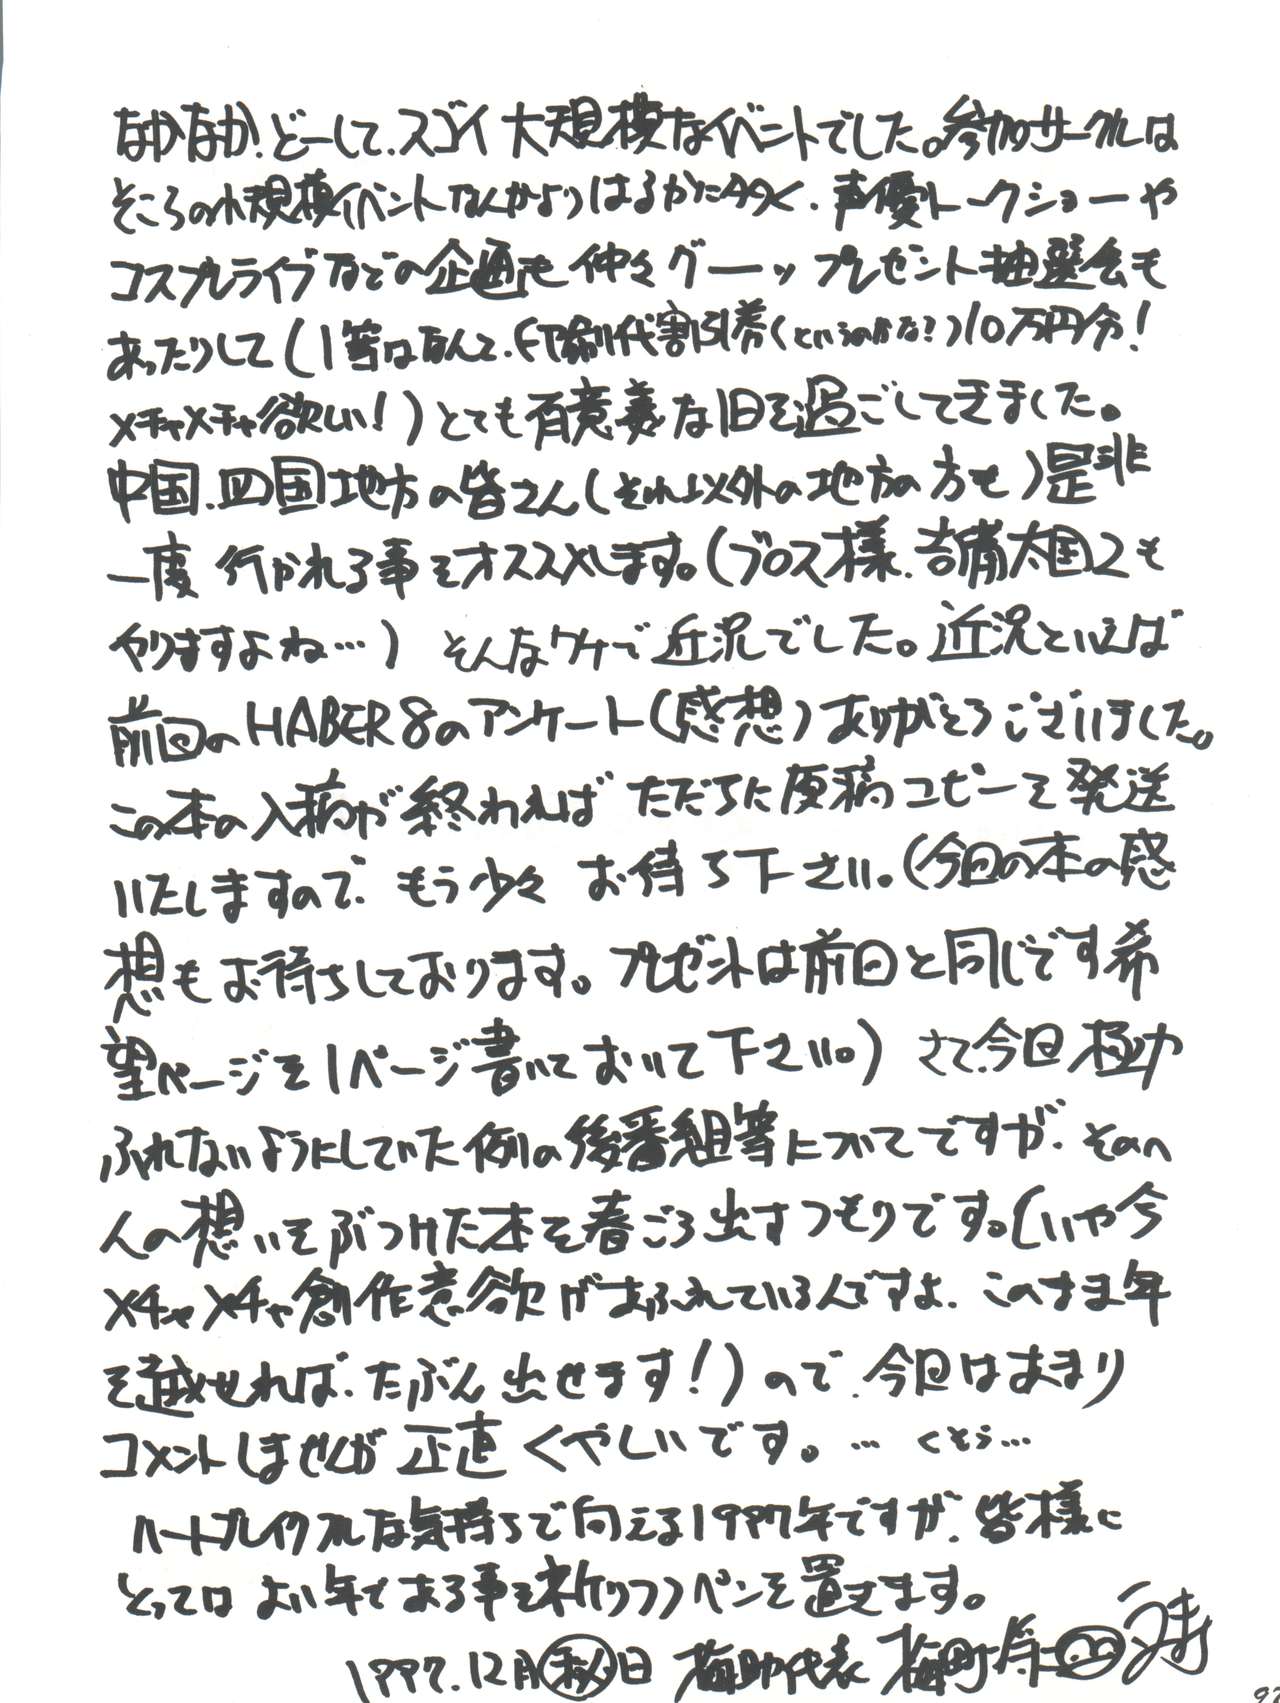 なかなか、どーして、スゴイ大規模なイベントでした。参加サークルは
そこらの小規模イベントなんかよりはるかに多く、声優トークショーや
コスプレライブなどの企画も仲々グーッ プレゼント抽選会も
あったりして(1等はなんと、印刷代割引券(というのかな?)10万円分!
メチャメチャ欲しい!)とても有意義な1日を過ごしてきました。
中国、四国地方の皆さん(それ以外の地方の方も)是非
一度 行かれる事をオススメします。(ブロス様、吉備太国2も
やりますよね…) そんなワケで近況でした。近況といえば
前回のHABER8のアンケート(感想)ありがとうございました。
この本の入稿が終われば ただちに原稿コピーを発送
いたしますので、もう少々 お待ち下さい。(今回の本の感
想もお待ちしております。プレゼントは前回と同じです希
望ページを1ページ書いておいて下さい。) さて、今回極力
ふれないようにしていた例の後番組等についてですが、その
人の想いをぶつけた本を春ごろ出すつもりです。(いや今
メチャメチャ創作意欲があふれているんですよ、このまま年
を越せれば、たぶん出せます!)ので、今回はあまり
コメントしませんが 正直くやしいです。… くそぅ…
ハートブレイクフルな気持ちで向える1997年ですが、皆様に
とってはよい年である事を祈りつつペンを置きます。
1997.12月㊙日 梅助代表 梅町